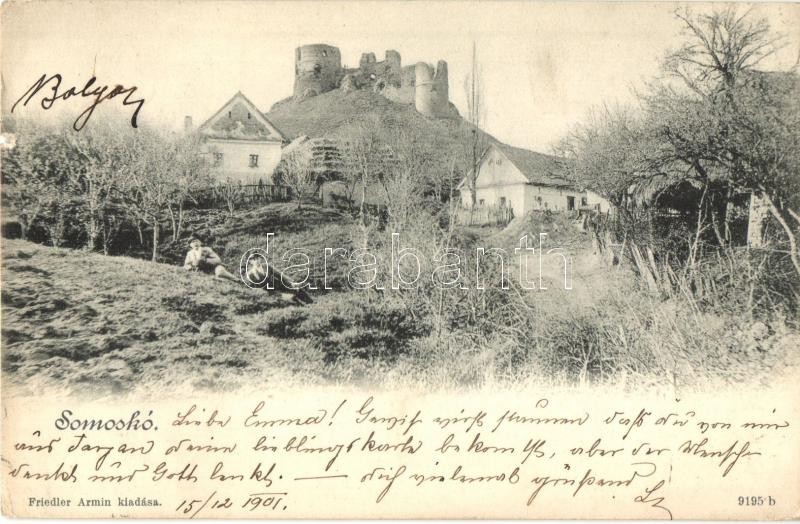 Bolyon
darabanth
Somoskó. Liebe Emma! Gewiß wirst staunen daß du von mir
aus deine lieblingskarte bekomst, aber der Mensch
denkt und Gott lenkt. — dich vielemals grüßend
Friedler Armin kiadása. 15/12 1901.
9195 b